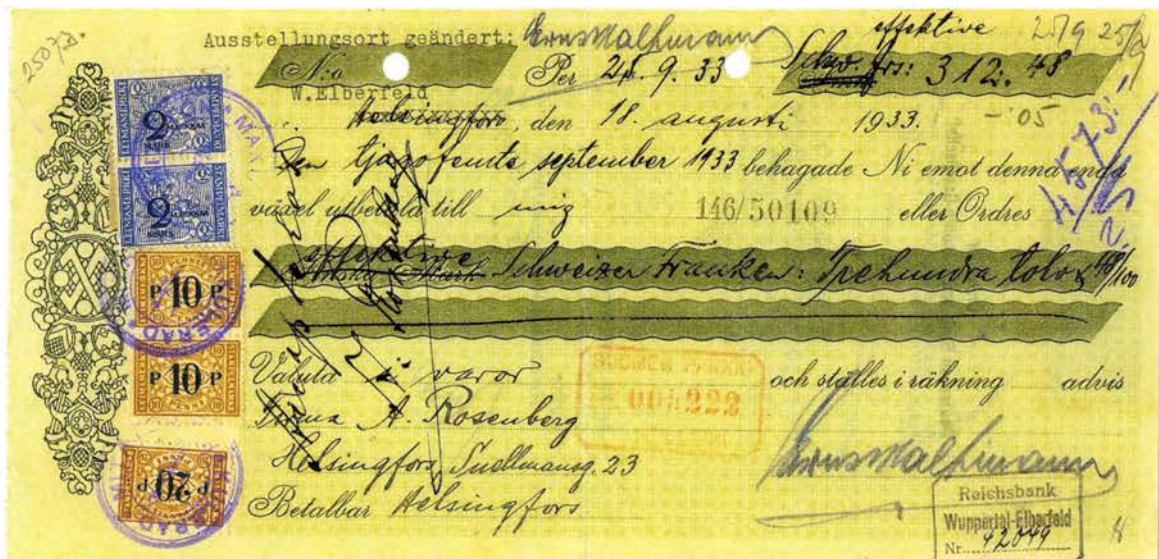 2507D.
Ausstellungsort geändert: effektive 25/9
N:o Per 25. 9. 33 Schw. frs: 312: 48
W.Elberfeld
Helsingfors, den 18. augusti 1933. - '05
Den tjugofemte september 1933 behagade Ni emot denna enda
växel utbetala till mig 146/50109 eller Ordres
effektive
Schweizer Franken: Trehundra tolv & 48/100
4573:-
Valuta i varor och ställes i räkning advis
SUOMEN PANKKI
222
Firma A. Rosenberg
Helsingfors, Snellmansg. 23
Betalbar Helsingfors
Reichsbank
Wuppertal-Elberfeld
Nr. 42049
LEIMAMERKKI STÄMPELMÄRKE
2 MARKKAA
MARK
2 MARKKAA
MARK
P 10 P
PENNIÄ
P 10 P
PENNIÄ
P 20 P